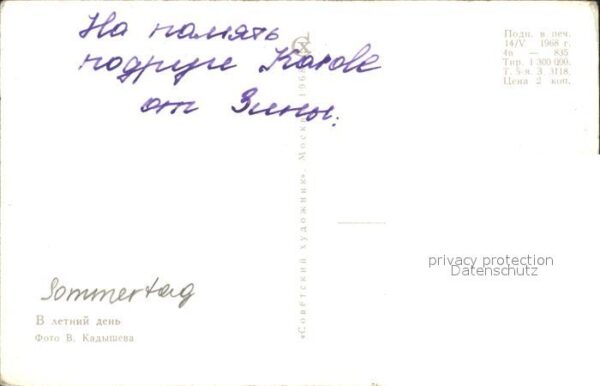 На память
подруге
от Зины.
Подп. в печ.
14/V 1968 г.
4п — 835
Тир. 1 300 000.
Т. 5-я. З. 3118.
Цена 2 коп.
«Советский художник». Москва. 1968
privacy protection
Datenschutz
Sommertag
В летний день
Фото В. Кадышева